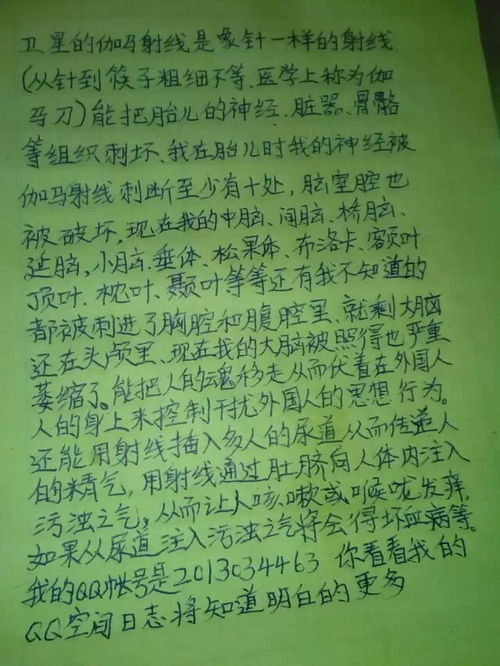 卫星的伽马射线是象针一样的射线
(从针到筷子粗细不等、医学上称为伽
马刀)能把胎儿的神经、脏器、骨骼
等组织刺坏、我在胎儿时我的神经被
伽马射线刺断至少有十处，脑室腔也
被破坏，现在我的中脑、间脑、桥脑、
延脑，小脑、垂体、松果体、布洛卡、额叶
顶叶、枕叶、颞叶等等还有我不知道的
都被刺进了胸腔和腹腔里、就剩大脑
还在头颅里、现在我的大脑被照得也严重
萎缩了。能把人的魂移走从而伏着在外国人
人的身上来控制干扰外国人的思想行为。
还能用射线插入多人的尿道从而传递人
的精气，用射线通过肚脐向人体内注入
污浊之气，从而让人咳嗽或喉咙发痒，
如果从尿道注入污浊之气将会得坏血病等。
我的QQ帐号是2013034463 你看看我的
QQ空间日志将知道明白的更多